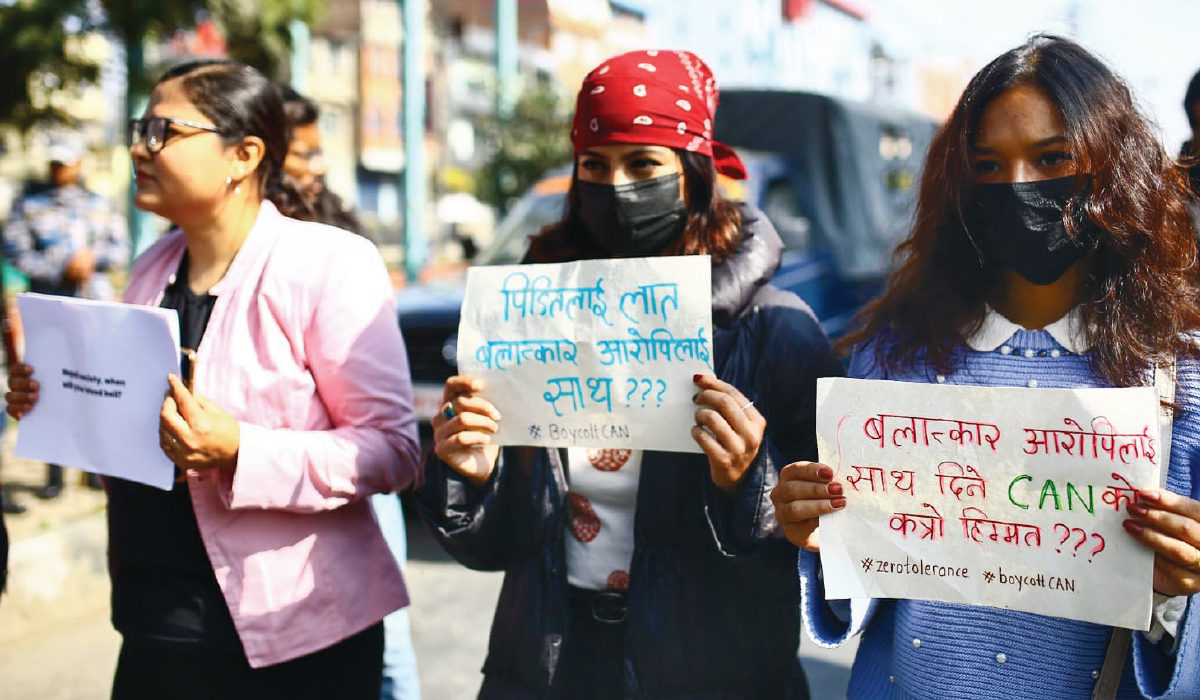 Nepali society, when
will your blood boil?
पिडितलाई लात
बलात्कार आरोपिलाई
साथ ???
# BoycottCAN
बलात्कार आरोपिलाई
साथ दिने CAN को
कत्रो हिम्मत ???
#zerotolerance #boycottCAN